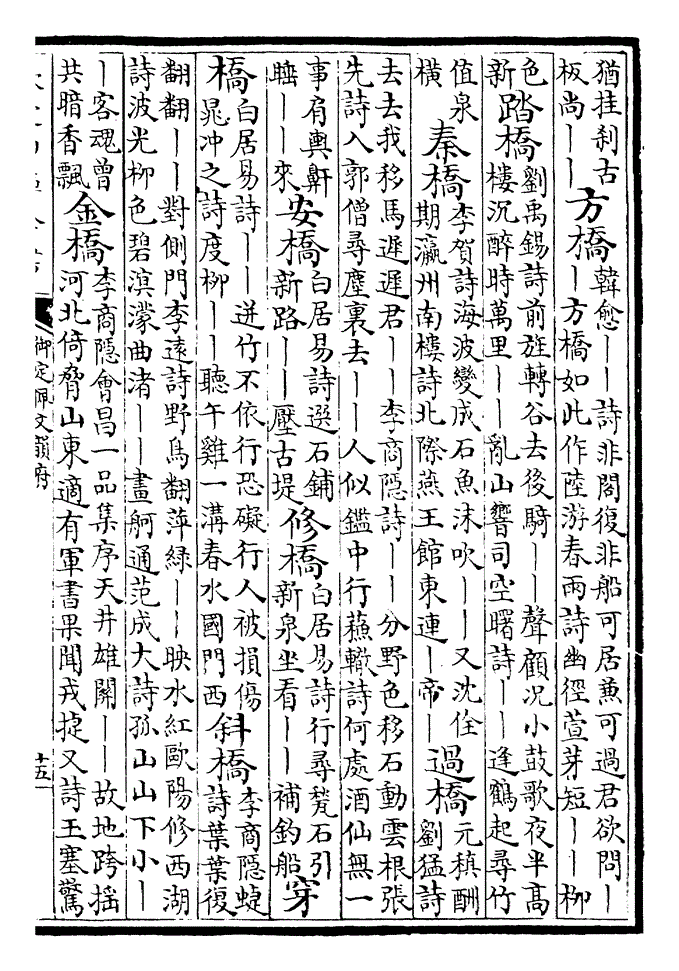 猶挂刹古板尚——方橋韓愈——詩非閣復非船可居兼可過君欲問——方橋如此作陸游春雨詩幽徑萱芽短——栁
色新踏橋劉禹錫詩前旌轉谷去後騎——聲顧况小鼓歌夜半高樓沉醉時萬里——亂山響司空曙詩——逢鶴起尋竹
值泉橫秦橋李賀詩海波變成石魚沫吹——又沈佺期瀛州南樓詩北際燕王館東連—帝—過橋元稹酬劉猛詩
去去我移馬遲遲君——李商隱詩——分野色移石動雲根張先詩人郭僧尋塵裏去——人似鑑中行蘓轍詩何處酒仙無一
事肩輿鼾睡——來安橋白居易詩選石鋪新路——壓古堤修橋白居易詩行尋甃石引新泉坐看——補釣船穿
橋白居易詩——迸竹不依行恐礙行人被損傷晁冲之詩度栁——聽午雞一溝春水國門西斜橋李商隱蜨詩葉葉復
翻翻——對側門李遠詩野鳥翻萍綠——映水紅歐陽修西湖詩波光栁色碧溟濛曲渚——畫舸通范成大詩孫山山下小—
—客魂曾共暗香飄金橋李商隱會昌一品集序天井雄關——故地跨摇河北倚脅山東適有軍書果聞戎捷又詩玉塞驚
御定佩文韻府
十五